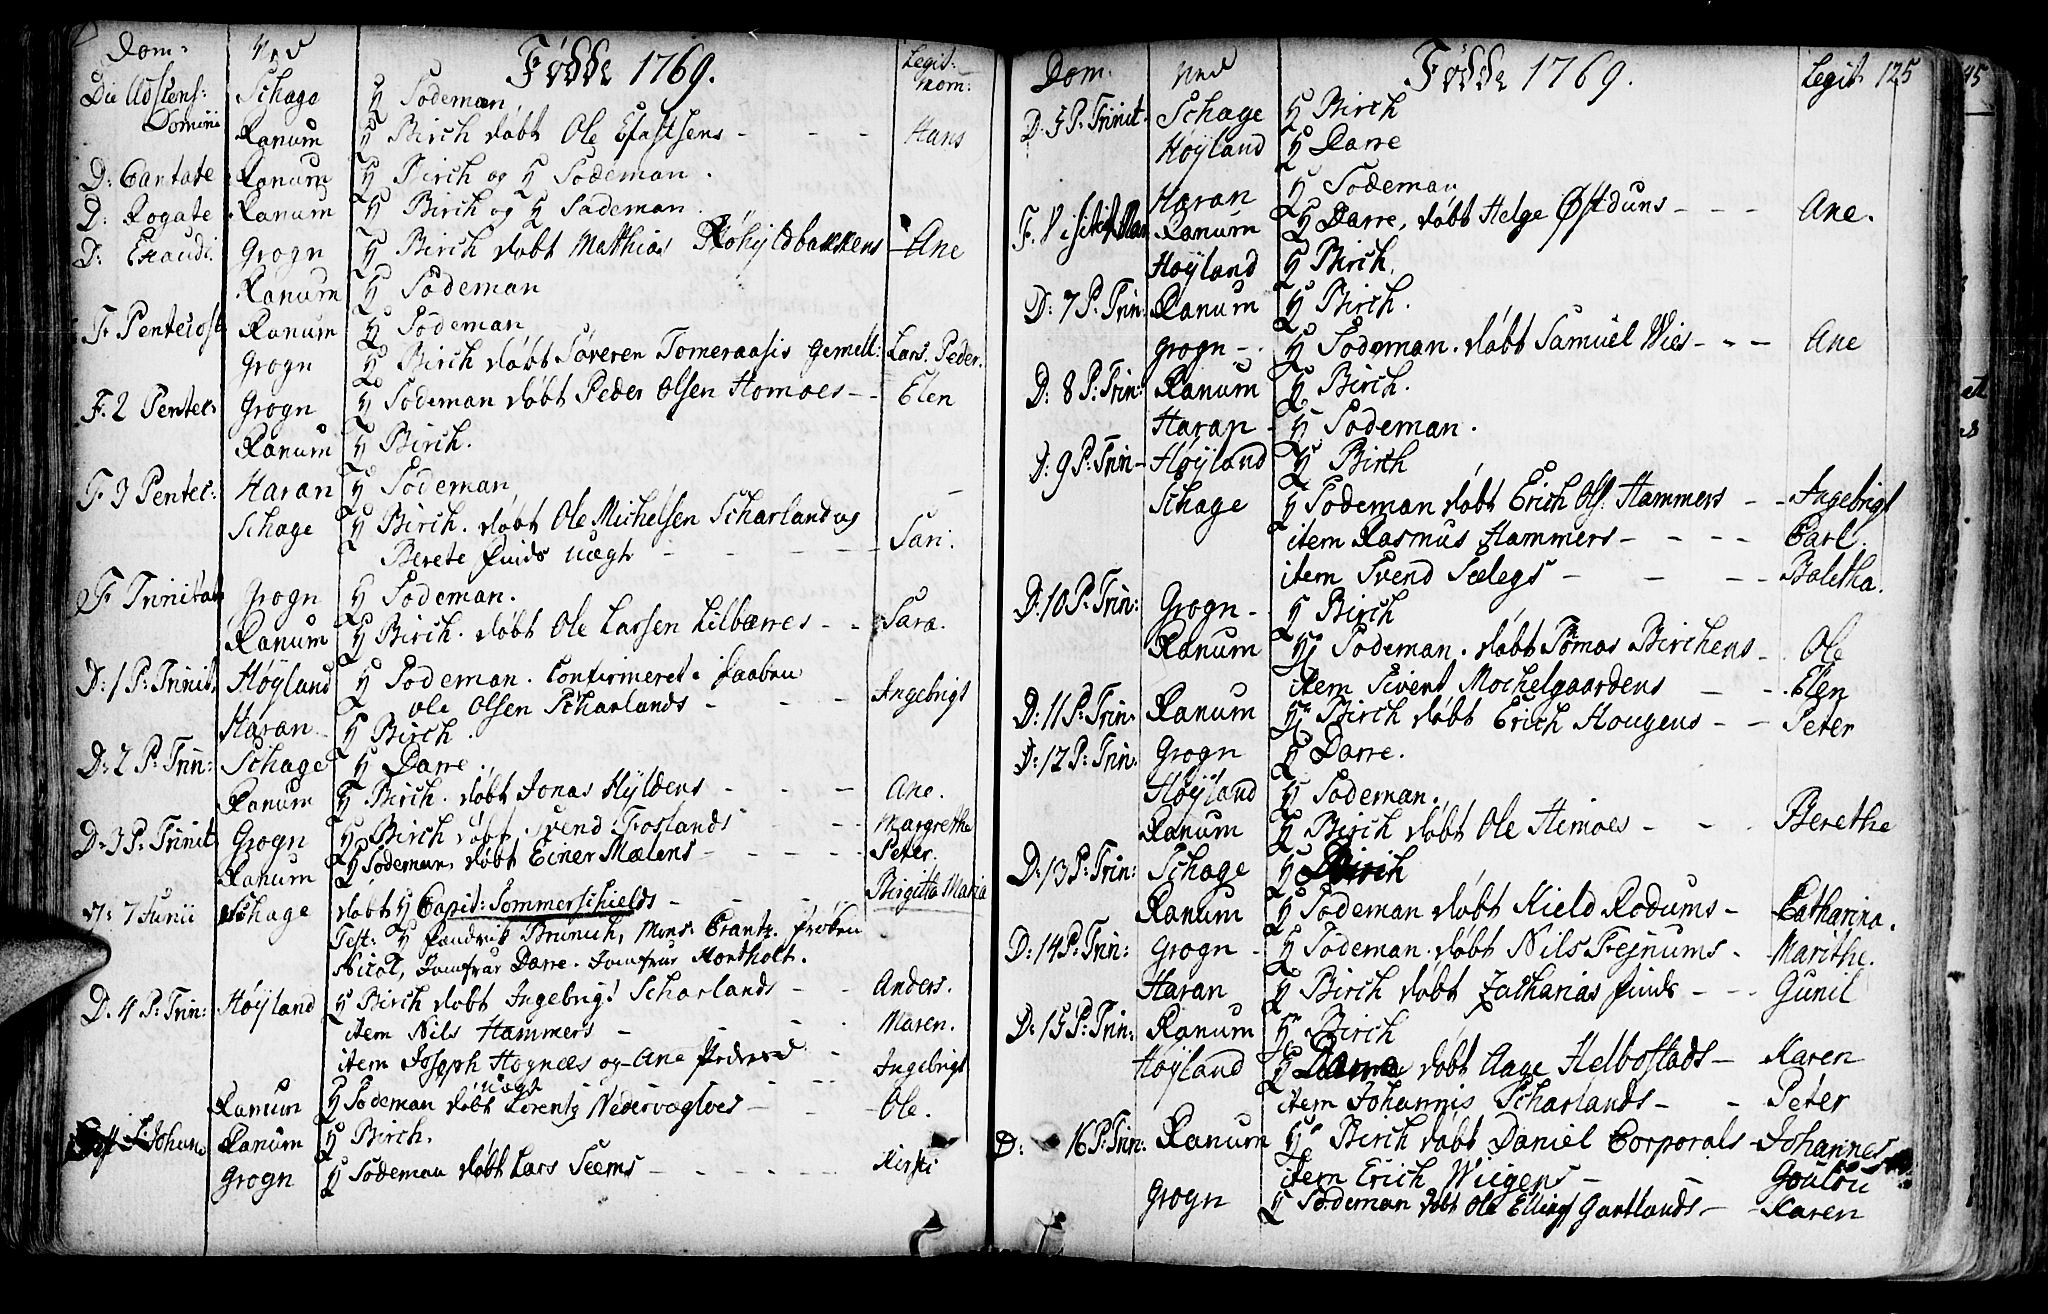 Dom: Ved Fødde 1769. Legit: nom:
Die Adscens: Schage H Sodeman,
Domini Ranum H Birch døbt Ole Efastsens - - - Hans
D: Cantate Ranum H Birch og H Sodeman.
D: Rogate Ranum H Birch og H Sodeman.
D: Exaudi. Grogn H Birch døbt Matthias Røhyldbakkens - Ane
Ranum H Sodeman
F. Pentecost Ranum H Sodeman
Grogn H Birch døbt Søveren Tomeraasis Gemell: Lars. Peder.
F. 2 Pentec: Grogn H Sodeman døbt Peder Olsen Homoes - - Elen
Ranum H Birch.
F 3 Pentec: Haran H Sodeman
Schage H Birch. døbt Ole Michelsen Scharland og
Berete Finds uægt - - - - - Sari.
F. Trinitat Grogn H Sodeman.
Ranum H Birch. døbt Ole Larsen Lilbærres - - Sara.
D: 1 P: Trinit. Høyland H Sodeman. Confirmeret i Daaben
Ole Olsen Scharlands - - - Ingebrigt
Haran H Birch.
D: 2 P: Trin: Schage H Darre.
Ranum H Birch. døbt Jonas Hyldens - - - Ane.
D: 3 P: Trinit. Grogn H Birch døbt Svend Foslands - - - Margrethe
Ranum H Sodeman døbt Einer Mælens - - - - - Peter.
D: 7 Junii Schage døbt H Capit: Sommerschields - - - - Birgitta Maria
Test: H Fændrik Brunich, Mons. Crantz. Frøken
Nicol, Jomfrue Darre. Jomfrue Hordholt.
D. 4 P: Trin: Høyland H Birch døbt Ingebrigt Scharlands - - Anders.
item Nils Hammers - - - . Maren.
item Joseph Hognæs og Ane - Ingebrigt
uægt
Ranum H Sodeman døbt Lorentz Nedervægloes - - - Ole.
Fest S. Johan. Ranum H Birch.
Grogn H Sodeman døbt Lars Seems - - - - - - Kirsti
Dom. Ved Fødde 1769. Legit 125
D: 5 P: Trinit. Schage H Birch
Høyland H Darre
Haran H Sodeman
F. Visitat Mar Ranum H Darre, døbt Helge Østduns - - - Ane.
Høyland H Birch.
D: 7 P: Trin: Ranum H Birch.
Grogn - H Sodeman. døbt Samuel Wies - - - Ane
D: 8 P: Trin: Ranum H Birch.
Haran H Sodeman.
D: 9 P: Trin - Høyland H Birch
Schage H Sodeman døbt Erich Ols: Hammers - - Ingebrigt
item Rasmus Hammers - - - - Carl.
item Svend Sælegs - - - - Baletha.
D: 10 P: Trin: Grogn - H Birch
Ranum H Sodeman. døbt Tomas Birchens - Ole
item Sivert Mochelgaardens - - Elen
D: 11 P: Trin. Ranum H Birch døbt Erich Hougens - - Peter
D: 12 P: Trin. Grogn H Darre.
Høyland H Sodeman.
Ranum H Birch døbt Ole Hemoes - - - Berethe
D: 13 P: Trin: Schage H Birch
Ranum H Sodeman døbt Kield Rodums - Catharina.
D: 14 P: Trin: Grogn - H Sodeman. døbt Nils Frejnums - Marithe.
Haran H Birch døbt Zacharias Finds - - - Gunil
D: 15 P: Trin: Ranum H Birch
Høyland H Darre døbt Aage Helbostads - Karen
item Johannis Scharlands - - Peter
D: 16 P: Trin: Ranum H Birch døbt Daniel Corporals - Johannes
item Erich Wiigens - - Goulou
Grogn H Sodeman døbt Ole Ellings Gartlands - - Karen